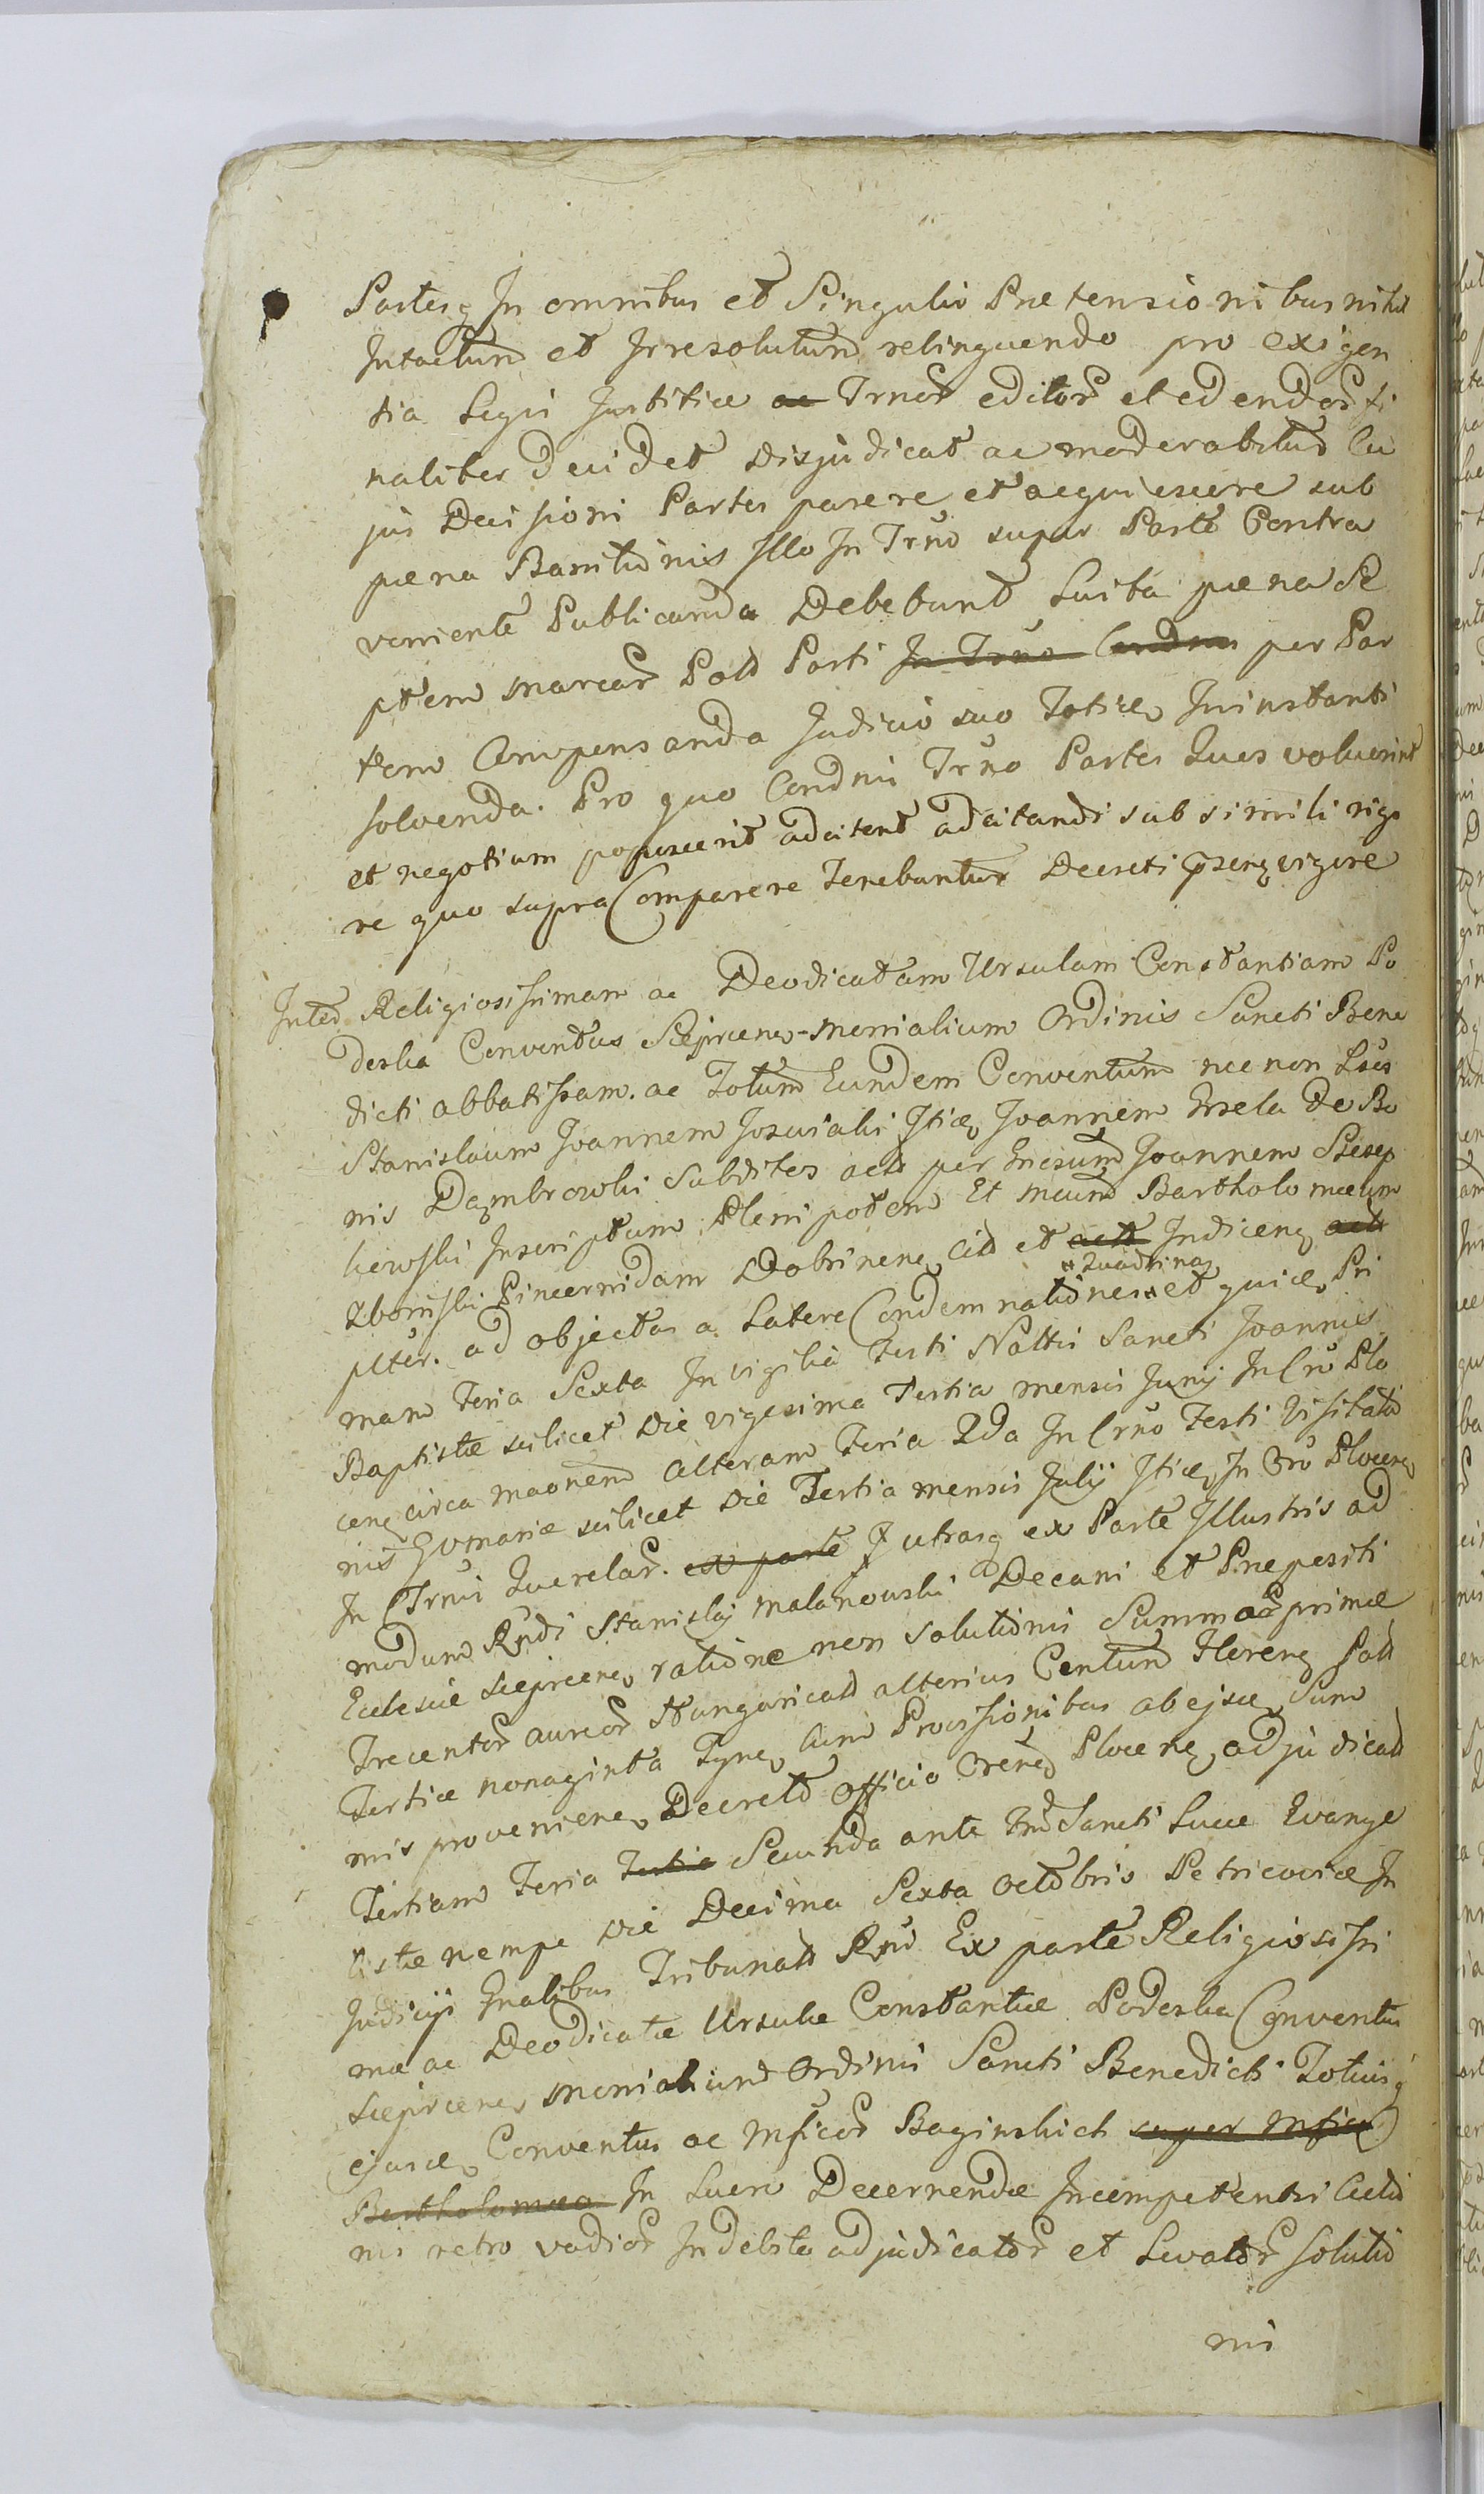 Partesq In omnibus et Singulis Praetensionibus nihil
Intactum et Irresolutum relinquendo pro exigen
tia Legis Justitiae ac Trnor editor et edendor fi
naliter decidet disjudicat ac moderabitur Cu
jus Decisioni Partes parere et acquiescere sub
paena Banitionis Illo In Trno super Parte Contra
veniente Publicanda Debebunt Luita paena Se
ptem marcar Pold Parti In Trno Condem per Par
tem Compensanda Judicio suo Totice Ininstanti
solvenda. Pro quo Condnii Trno Partes Quos voluerint
et negotium poposcerit adcitent adcitandi sub simili rigo
re quo supra Comparere Tenebuntur Decreti psenq vigore
Inter Religiosissimam ac Deodicatam Ursulam Constantiam Po
deska Conventus Scieprcene Monialium Ordinis Sancti Bene
dicti abbatissam. ac Totum Eundem Conventum nec non Lsos
Stanislaum Joannem Itice Joannem De Bo
nis Dazmbrowski Subditos act per Gnesum Joannem
kowski Inscriptum Plenipotem Et Mcum Bartholomaeum
Zboinski Pincernidam Dobrinene Citt et actt Indicenq act
plter. ad objectas a Latere Condemnationes Quadrinas et quice Pri
mam Feria Sexta In vigilia Festi Nattis Sancti Joannis
Baptistae scilicet die vigesima Tertia mensis Junij In Cro Plo
cenq circa maonem alteram Feria 2da In Crno Festi Visitatio
nis Gvmariae scilicet die Tertia mensis Julij Itice In Cro Plocenq
In Trnii Querelar. ex parte utrasq ex Parte Illustris ad
modum Rndi Stanislaj Malanowski Decani et Praepositi
Ecclesiae Scieprcene ratione non Solutionis Summar primae
Trecentor aureor Hungaricall alterius Centum Herenq Poll
Tertiae nonaginta Tyne cum Provisionibus ab ejsce Sum
mis proveniene Decreto Officio Crenq Plocenq adjudicatt
Tertiam Feria Tertia Secunda ante Fm Sancti Lucae Evange
listae nempe die Decima Sexta Octobris Petricoviae In
Judicijs Gnalibus Tribunall Rni Ex parte Religiosissi
mae ac Deodicatae Ursulae Constantiae Podeska Conventus
Sciepcene Monialium Ordinis Sancti Benedicti Totiusq
ejusce Conventus ac Mficor Baginskich super Mfico
Bartholomaeo In Lucro Decernendae Incompetentis Citio
nis retro vadior Indebite adjudicator et Levator Solutio
nis